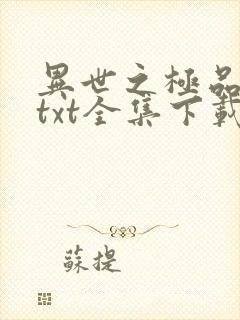 異世之極品
txt全集下載
蘇提